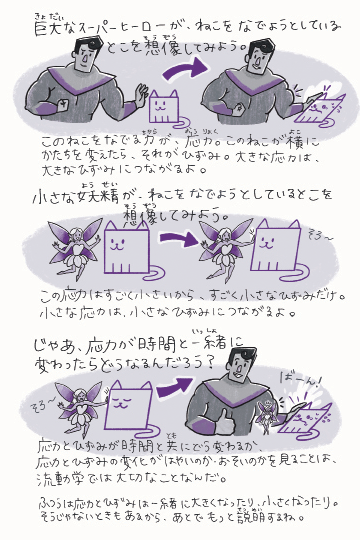 巨大なスーパーヒーローが、ねこをなでようとしている
とこを想像してみよう。
このねこをなでる力が、応力。このねこが横に
かたちを変えたら、それがひずみ。大きな応力は、
大きなひずみにつながるよ。
小さな妖精が、ねこをなでようとしているとこを
想像してみよう。
そろ〜
この応力はすごく小さいから、すごく小さなひずみだけ。
小さな応力は、小さなひずみにつながるよ。
じゃあ、応力が時間と一緒に
変わったらどうなるんだろう？
ばーん！
そろ〜
応力とひずみが時間と共にどう変わるか、
応力とひずみの変化がはやいのか・おそいのかを見ることは、
流動学では大切なことなんだ。
ふつうは応力とひずみは一緒に大きくなったり、小さくなったり。
そうじゃないときもあるから、あとでもっと説明するね。